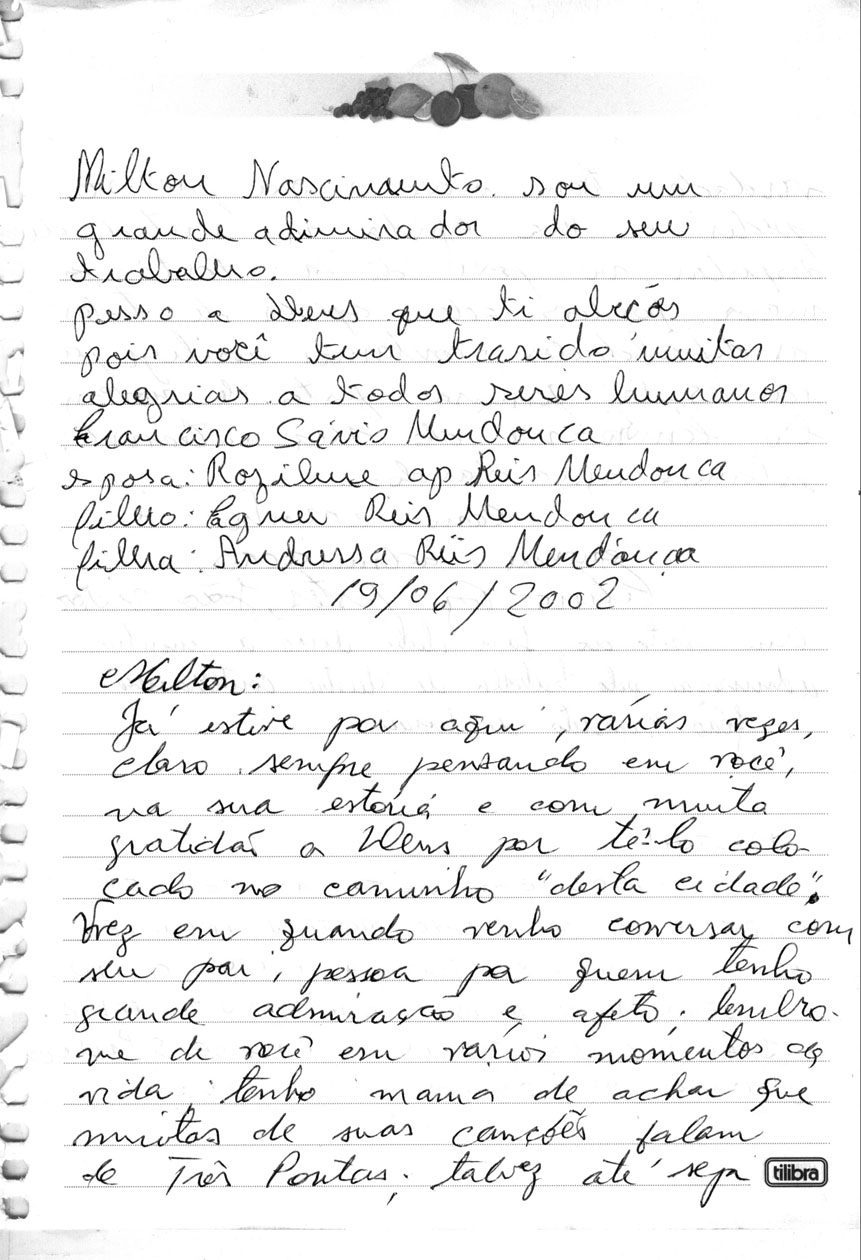 Milton Nascimento. sou um
grande adimirador do seu
trabalho.
pesso a Deus que ti abeçõs
pois você tem trasido muitas
alegrias a todos seres humanos
Francisco Sávio Mendonca
esposa: Rozilene ap Reis Mendonca
filho: Egner Reis Mendonca
filha: Andressa Reis Mendonça
19/06/2002
Milton:
Já estive por aqui, várias vezes,
claro sempre pensando em você,
na sua estória e com muita
gratidão a Deus por tê-lo colo-
cado no caminho "desta cidade".
Vez em quando venho conversar com
seu pai, pessoa por quem tenho
grande admiração e afeto. lembro-
me de você em vários momentos da
vida, tenho mania de achar que
muitas de suas canções falam
de Três Pontas; talvez até seja
tilibra